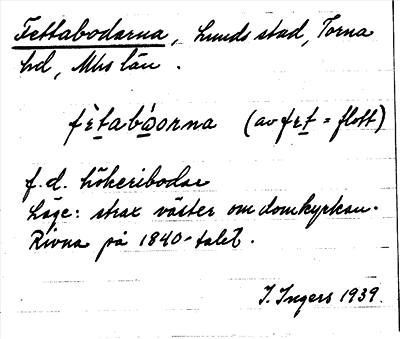 Fettabodarna, Lunds stad, Torna
hd, Mhs län.
fètabòorna (av fet = flott)
f.d. hökeribodar
Läge: strax väster om domkyrkan.
Rivna på 1840-talet.
I. Ingers 1939.